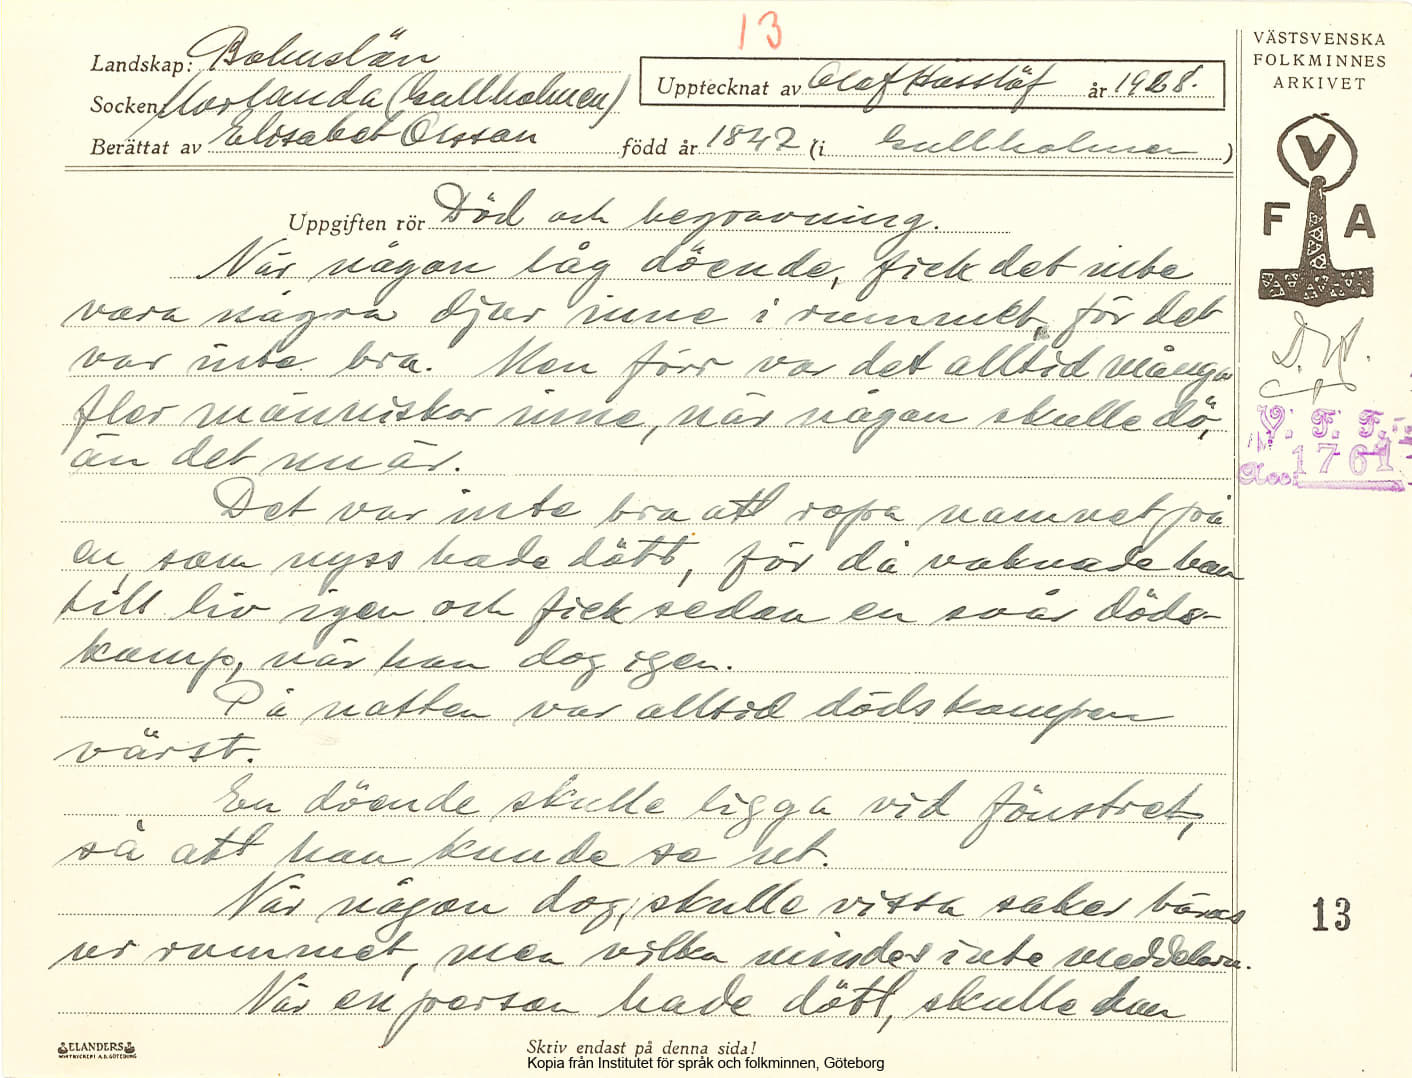 13
Landskap: Bohuslän
Socken: Morlanda (Gullholmen)
Upptecknat av Olof Hasslöf år 1928.
Berättat av Elisabet Olsson född år 1842 (i Gullholmen)
Uppgiften rör Död och begravning.
När någon låg döende, fick det inte
vara några djur inne i rummet, för det
var inte bra. Men förr var det alltid många
fler människor inne, när någon skulle dö,
än det nu är.
Det var inte bra att ropa namnet på
en, som nyss hade dött, för då vaknade han
till liv igen och fick sedan en svår döds-
kamp, när han dog igen.
På natten var alltid dödskampen
värst.
En döende skulle ligga vid fönstret,
så att han kunde se ut.
När någon dog, skulle vissa saker bäras
ur rummet, men vilka minder inte meddelarn.
När en person hade dött, skulle han
ELANDERS
Skriv endast på denna sida!
Kopia från Institutet för språk och folkminnen, Göteborg
VÄSTSVENSKA
FOLKMINNES
ARKIVET
V
F A
V. F. F.
1761
13